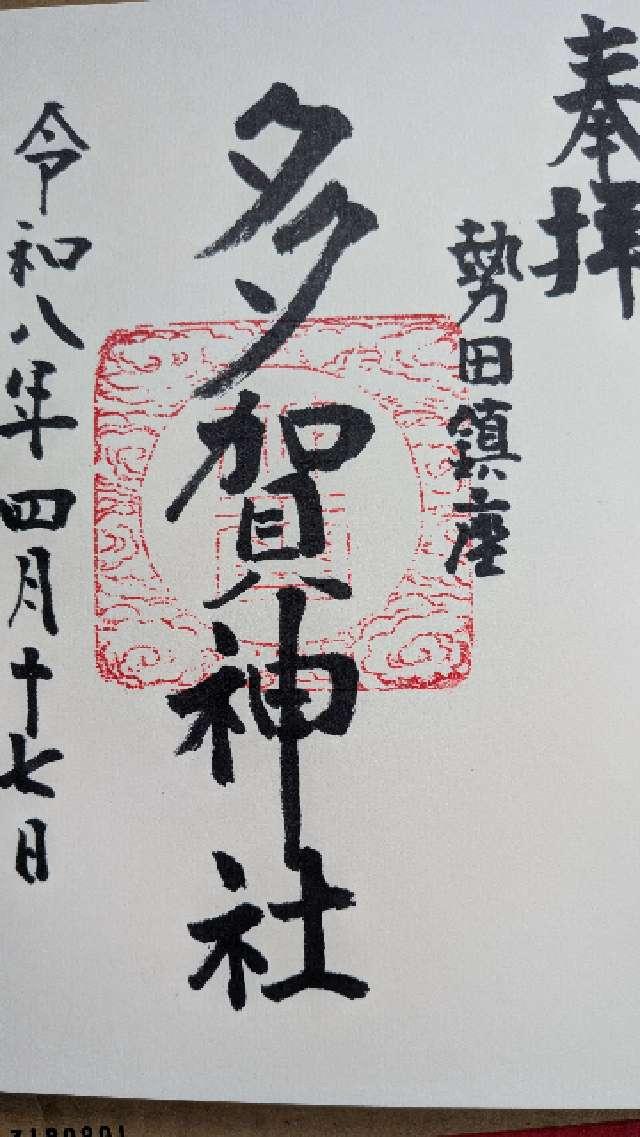 奉拝
勢田鎮座
多賀神社
令和八年四月十七日